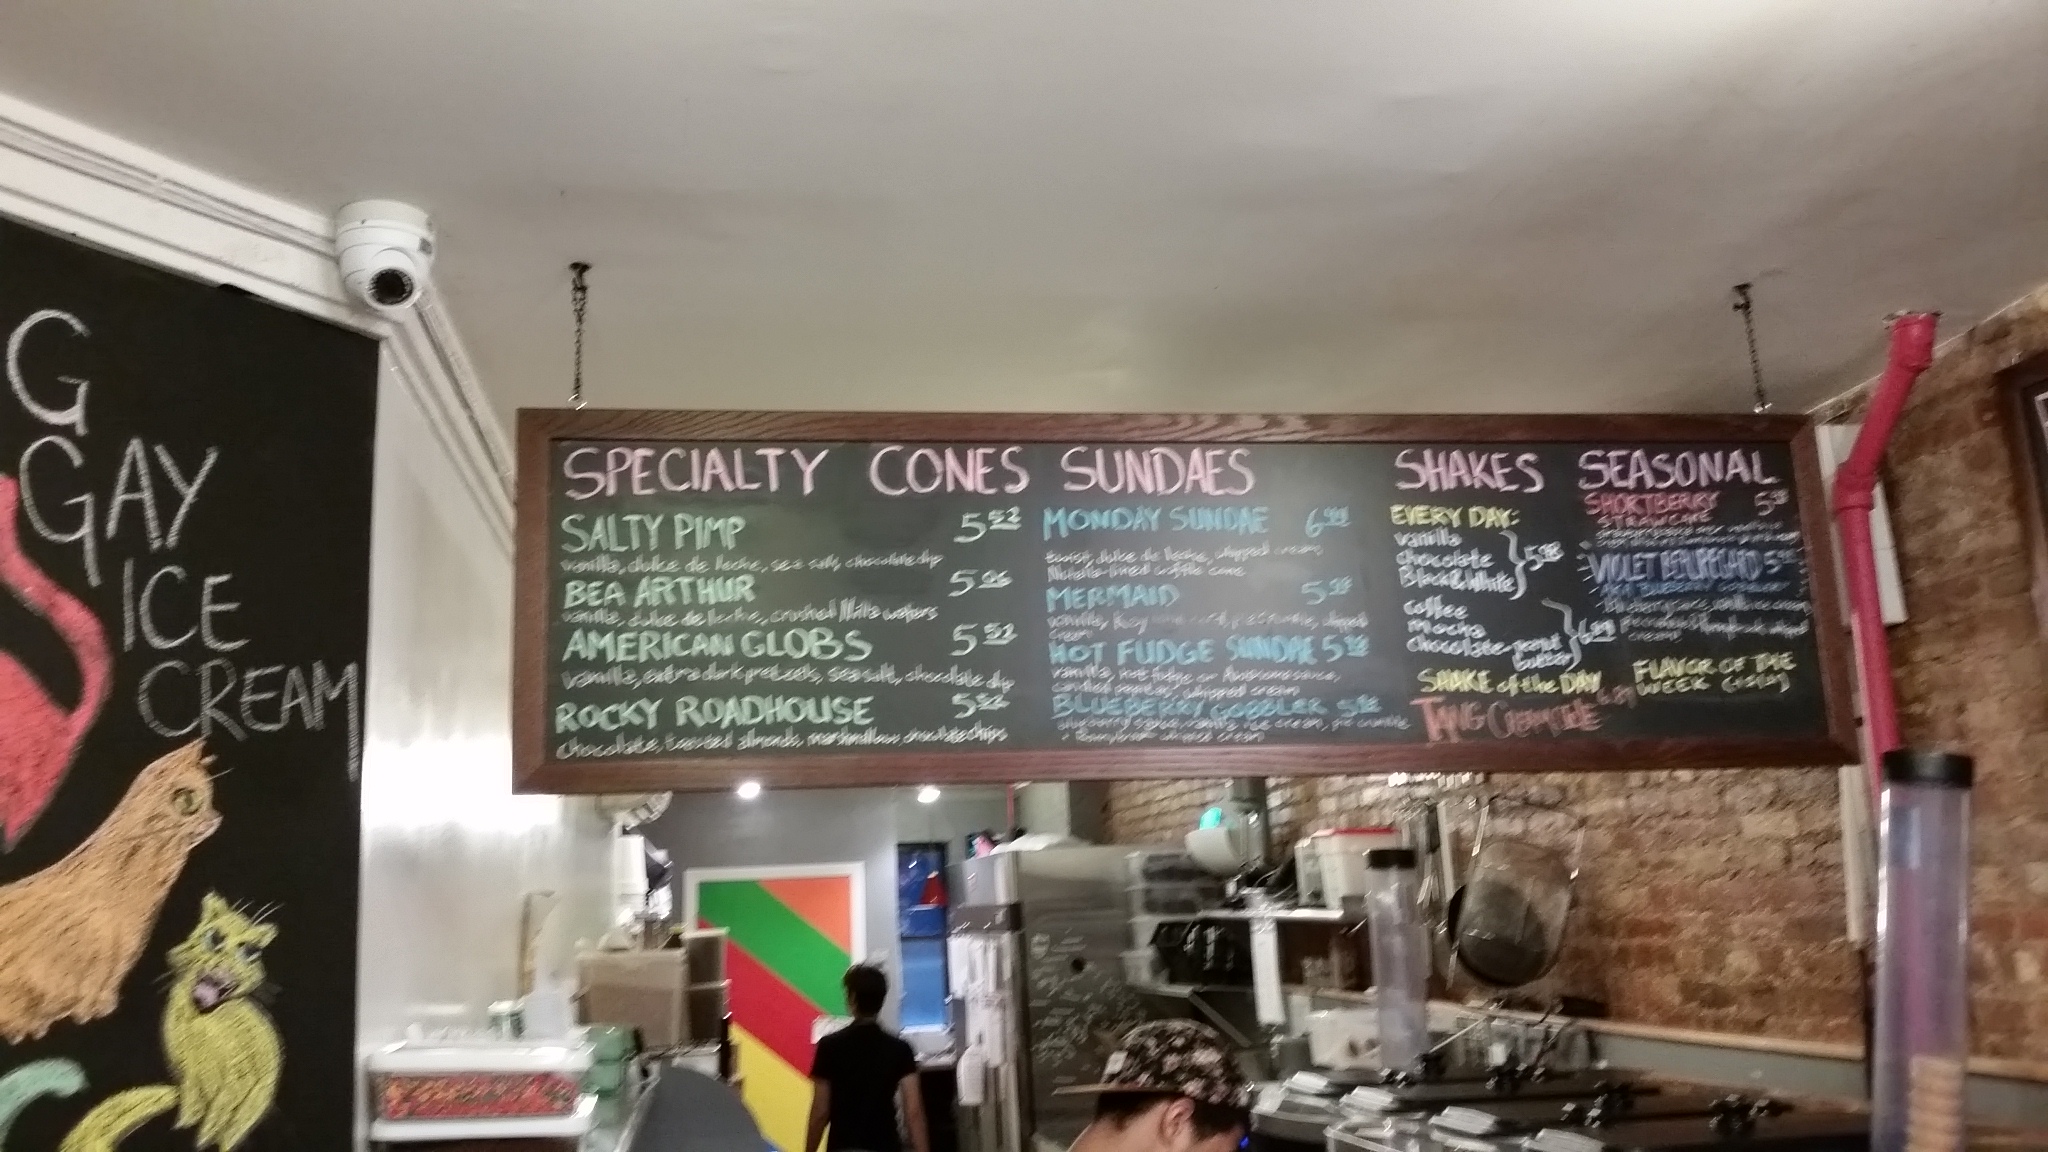 G
GAY
ICE
CREAM
SPECIALTY CONES
SALTY PIMP 5.52
vanilla, dulce de leche, sea salt, chocolate dip
BEA ARTHUR 5.06
vanilla, dulce de leche, crushed Nilla wafers
AMERICAN GLOBS 5.53
vanilla, extra dark pretzels, sea salt, chocolate dip
ROCKY ROADHOUSE 5.52
chocolate, toasted almonds, marshmallow, chocolate chips
SUNDAES
MONDAY SUNDAE 6.44
twist, dulce de leche, whipped cream,
Nutella-lined waffle cone
MERMAID
vanilla, key lime curd, pie crumble, whipped
cream
HOT FUDGE SUNDAE
vanilla, hot fudge or Awesomesauce,
whipped cream
BLUEBERRY GOBBLER
blueberry sauce, vanilla ice cream, pie crumble
whipped cream
SHAKES
EVERY DAY:
vanilla
chocolate
Black & White
coffee
mocha
chocolate-peanut
butter
SHAKE of the DAY
TANG CREAMSICLE
SEASONAL
SHORTBERRY
STRAWCAKE
VIOLET BEUREGARD
FLAVOR OF THE
WEEK